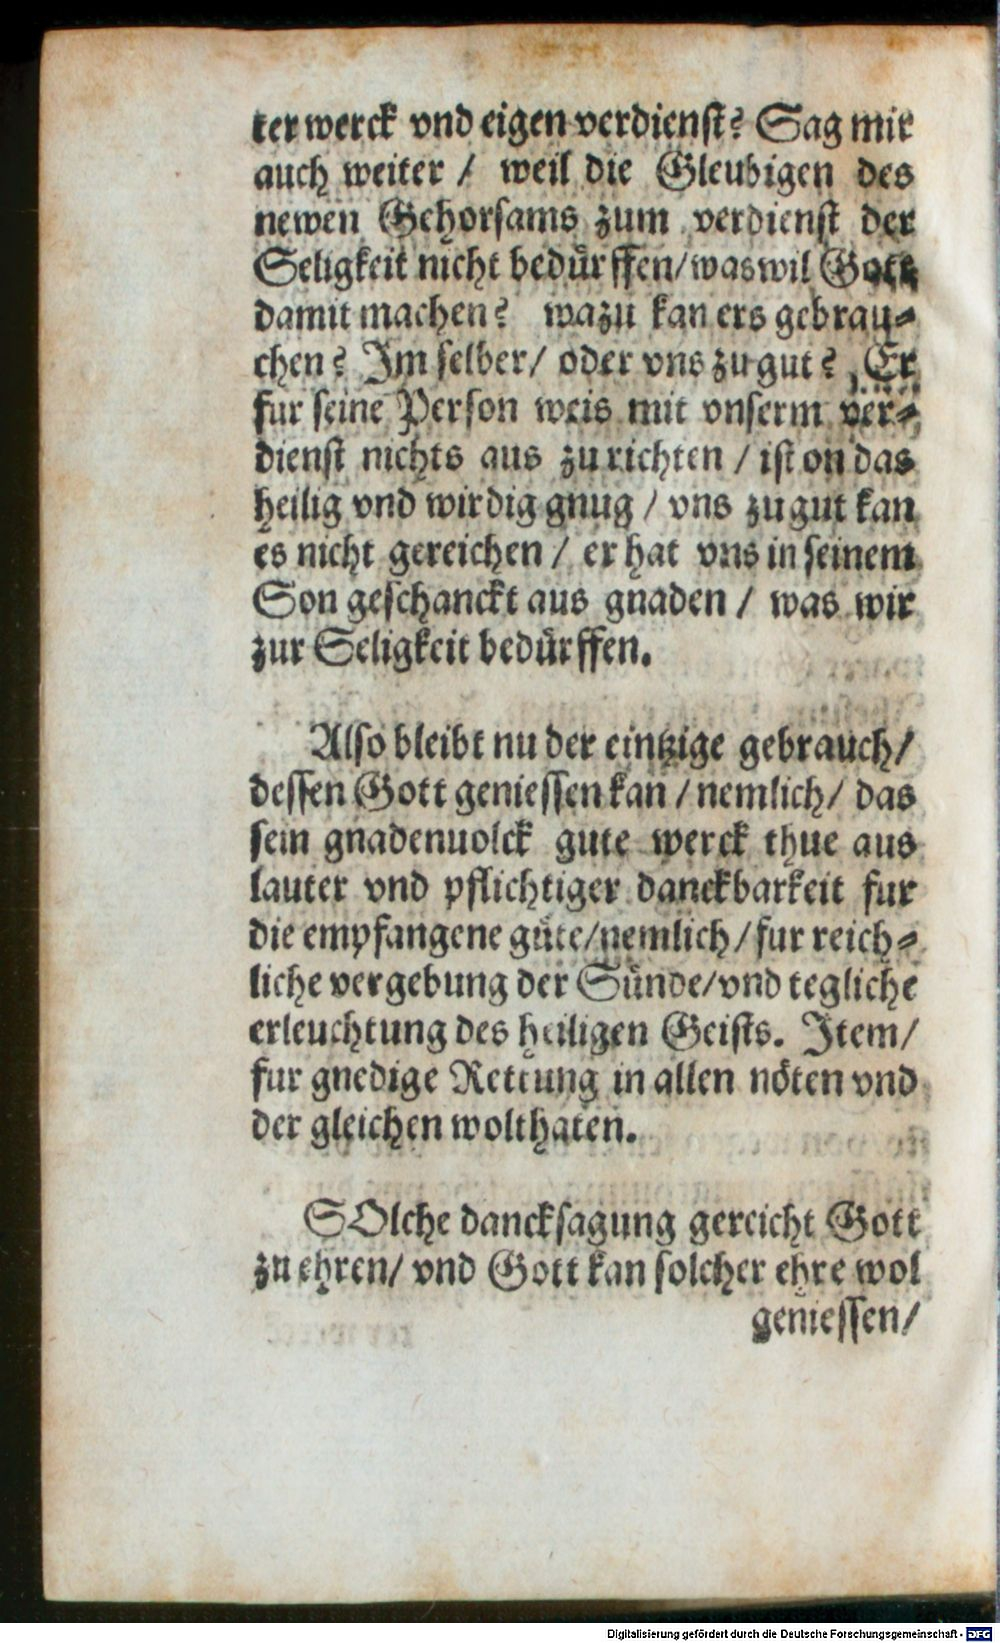 ter werck vnd eigen verdienst? Sag mir
auch weiter / weil die Gleubigen des
newen Gehorsams zum verdienst der
Seligkeit nicht bedürffen/was wil Gott
damit machen? wazu kan ers gebrau-
chen? Im selber/ oder vns zu gut? Er
fur seine Person weis mit vnserm ver-
dienst nichts aus zu richten / ist on das
heilig vnd wirdig gnug / vns zu gut kan
es nicht gereichen / er hat vns in seinem
Son geschanckt aus gnaden / was wir
zur Seligkeit bedürffen.
Also bleibt nu der eintzige gebrauch/
dessen Gott geniessen kan / nemlich/ das
sein gnadenuolck gute werck thue aus
lauter vnd pflichtiger danckbarkeit fur
die empfangene güte/nemlich/fur reich-
liche vergebung der Sünde/vnd tegliche
erleuchtung des heiligen Geists. Item/
fur gnedige Rettung in allen nöten vnd
der gleichen wolthaten.
SOlche dancksagung gereicht Gott
zu ehren/ vnd Gott kan solcher ehre wol
geniessen/
Digitalisierung gefördert durch die Deutsche Forschungsgemeinschaft - DFG